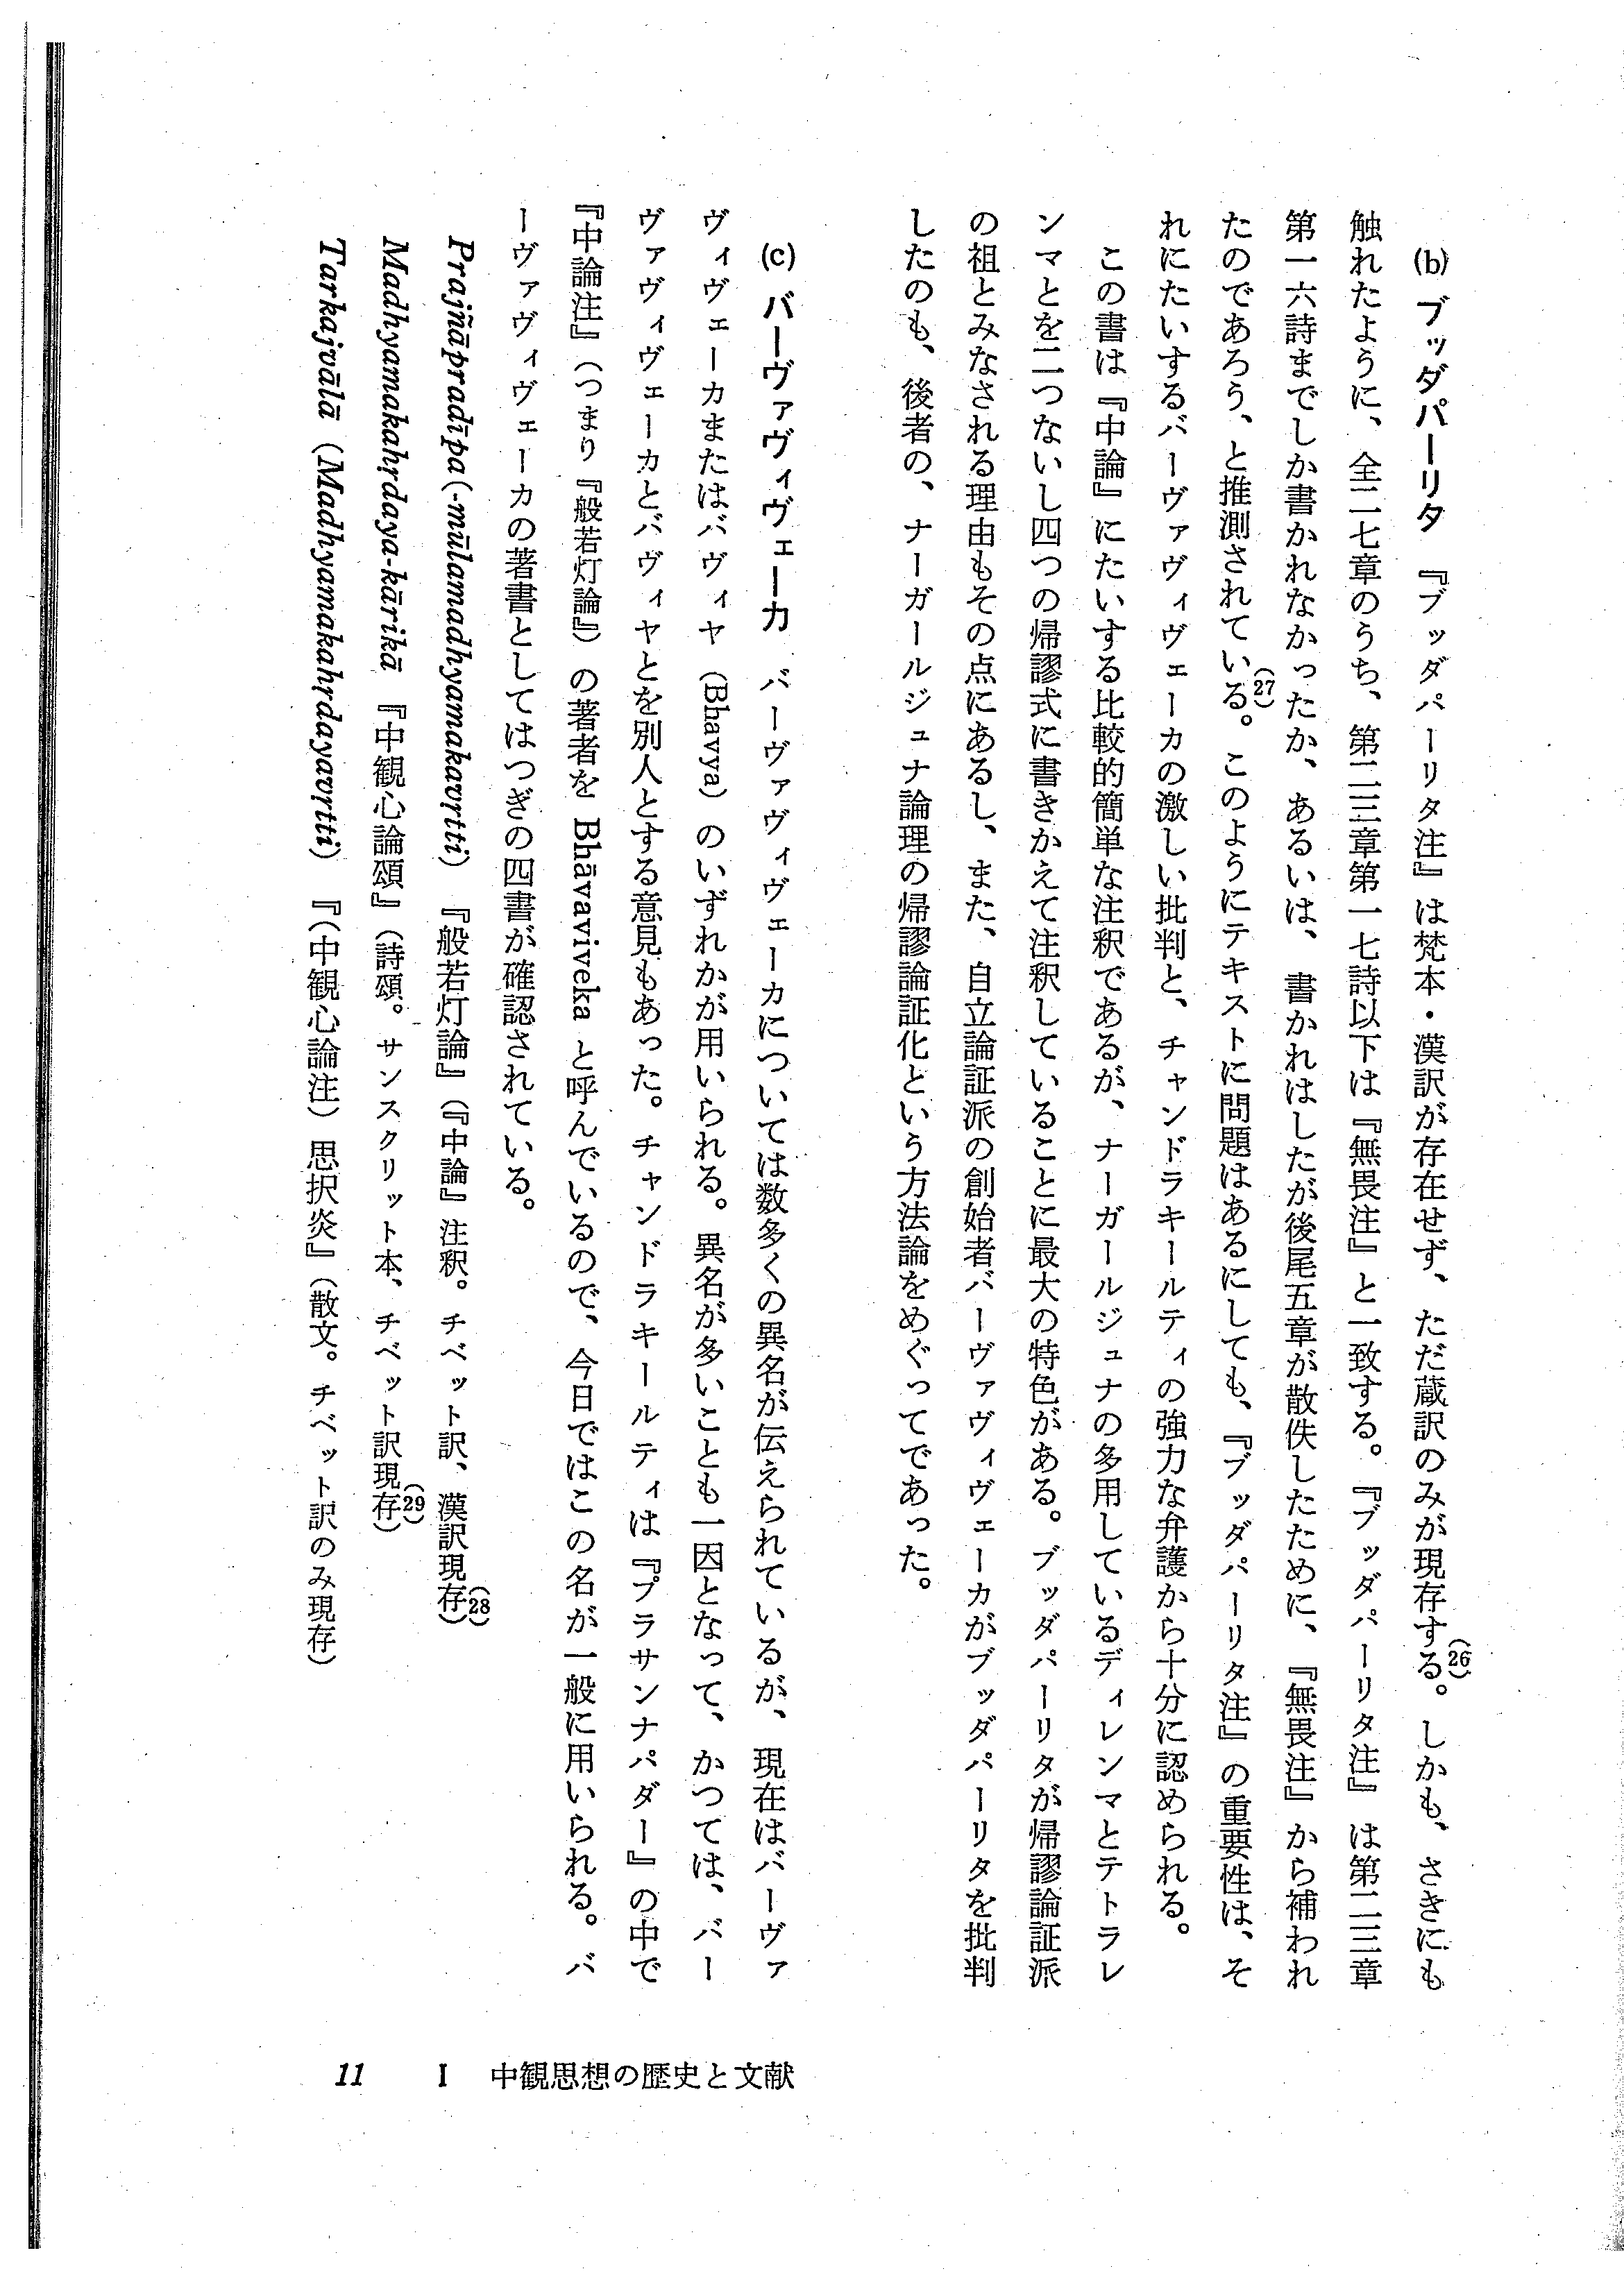 (b) ブッダパーリタ　『ブッダパーリタ注』は梵本・漢訳が存在せず、ただ蔵訳のみが現存する(26)。しかも、さきにも
触れたように、全二七章のうち、第二三章第一七詩以下は『無畏注』と一致する。『ブッダパーリタ注』は第二三章
第一六詩までしか書かれなかったか、あるいは、書かれはしたが後尾五章が散佚したために、『無畏注』から補われ
たのであろう、と推測されている(27)。このようにテキストに問題はあるにしても、『ブッダパーリタ注』の重要性は、そ
れにたいするバーヴァヴィヴェーカの激しい批判と、チャンドラキールティの強力な弁護から十分に認められる。
　この書は『中論』にたいする比較的簡単な注釈であるが、ナーガールジュナの多用しているディレンマとテトラレ
ンマとを二つないし四つの帰謬式に書きかえて注釈していることに最大の特色がある。ブッダパーリタが帰謬論証派
の祖とみなされる理由もその点にあるし、また、自立論証派の創始者バーヴァヴィヴェーカがブッダパーリタを批判
したのも、後者の、ナーガールジュナ論理の帰謬論証化という方法論をめぐってであった。
(c) バーヴァヴィヴェーカ　バーヴァヴィヴェーカについては数多くの異名が伝えられているが、現在はバーヴァ
ヴィヴェーカまたはバヴィヤ（Bhavya）のいずれかが用いられる。異名が多いことも一因となって、かつては、バー
ヴァヴィヴェーカとバヴィヤとを別人とする意見もあった。チャンドラキールティは『プラサンナパダー』の中で
『中論注』（つまり『般若灯論』）の著者を Bhāvaviveka と呼んでいるので、今日ではこの名が一般に用いられる。バ
ーヴァヴィヴェーカの著書としてはつぎの四書が確認されている。
Prajñāpradīpa (-mūlamadhyamakavrtti) 『般若灯論』（『中論』注釈。チベット訳、漢訳現存）(28)
Madhyamakahrdaya-kārikā 『中観心論頌』（詩頌。サンスクリット本、チベット訳現存）(29)
Tarkajvālā (Madhyamakahrdayavrtti) 『（中観心論注）思択炎』（散文。チベット訳のみ現存）
11　I　中観思想の歴史と文献